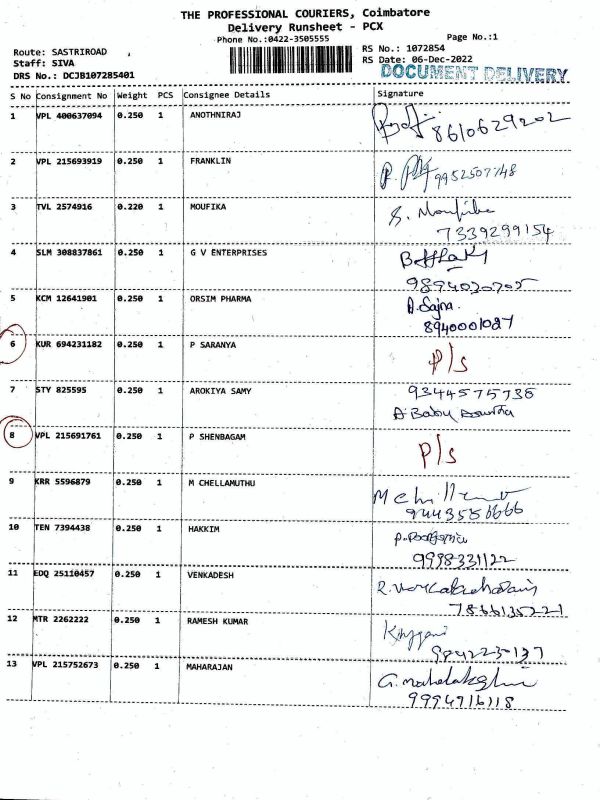 THE PROFESSIONAL COURIERS, Coimbatore
Delivery Runsheet - PCX
Phone No.:0422-3505555
Page No.:1
Route: SASTRIROAD ,
RS No.: 1072854
Staff: SIVA
RS Date: 06-Dec-2022
DRS No.: DCJB107285401
DOCUMENT DELIVERY
S No Consignment No Weight PCS Consignee Details Signature
1 VPL 400637094 0.250 1 ANOTHNIRAJ
8610629202
2 VPL 215693919 0.250 1 FRANKLIN
9952507748
3 TVL 2574916 0.220 1 MOUFIKA S. Moufika
7339299154
4 SLM 308837861 0.250 1 G V ENTERPRISES
5 KCM 12641901 0.250 1 ORSIM PHARMA A. Sajna
8940001087
6 KUR 694231182 0.250 1 P SARANYA P/s
7 STY 825595 0.250 1 AROKIYA SAMY 9344575736
A. Babu
8 VPL 215691761 0.250 1 P SHENBAGAM P/s
9 KRR 5596879 0.250 1 M CHELLAMUTHU
10 TEN 7394438 0.250 1 HAKKIM
9998331122
11 EDQ 25110457 0.250 1 VENKADESH
7866135221
12 MTR 2262222 0.250 1 RAMESH KUMAR
13 VPL 215752673 0.250 1 MAHARAJAN G. mahalakshmi
9994716118